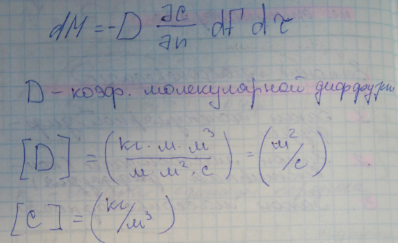 dM = -D ∂c/∂n dF dτ
D - коэф. молекулярной диффузии
[D] = (кг · м · м³ / м · м² · с) = (м²/с)
[c] = (кг/м³)